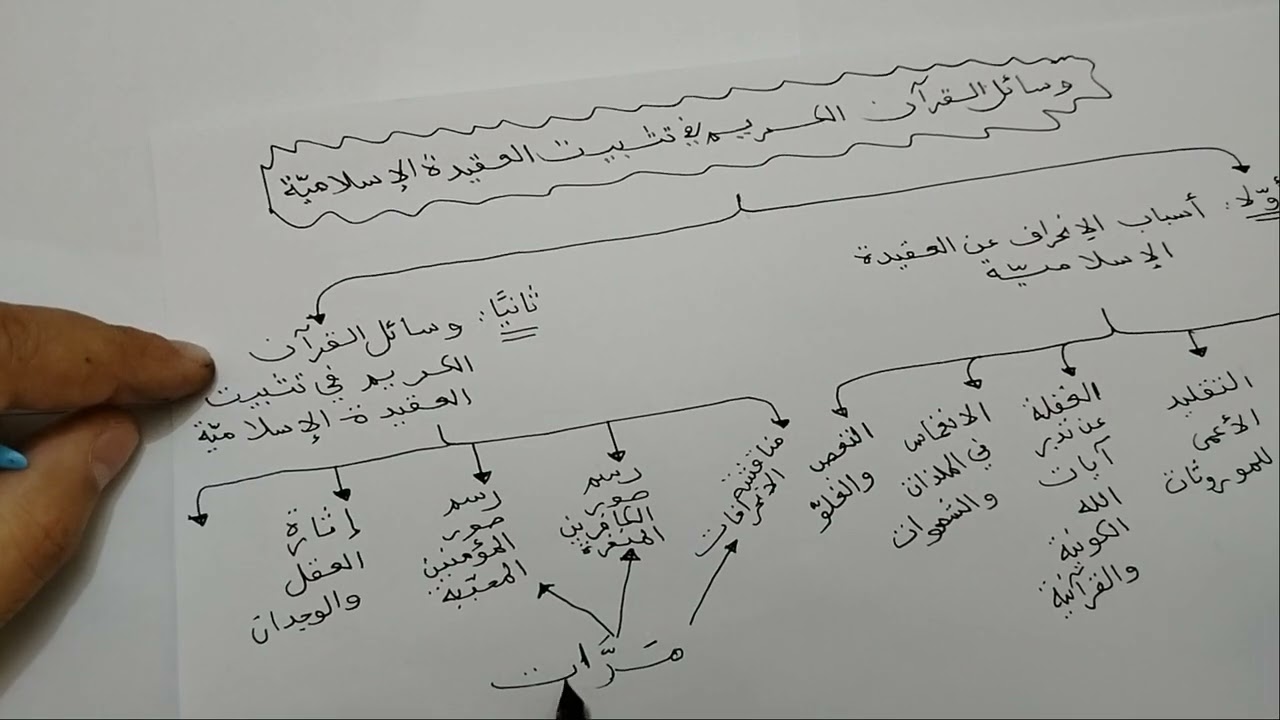 وسائل القرآن الكريم في تثبيت العقيدة الإسلاميّة
أوّلا: أسباب الإنحراف عن العقيدة
الإسلاميّة
التقليد
الأعمى
للموروثات
الغفلة
عن تدبر
آيات
الله
الكونية
والقرآنية
الانغماس
في الملذات
والشهوات
التعصب
والغلوّ
ثانيًا: وسائل القرآن
الكريم في تثبيت
العقيدة الإسلاميّة
مناقشة
الانحرافات
رسم
صور
الكافرين
المنفرة
رسم
صور
المؤمنين
المحببة
إثارة
العقل
والوجدان
مَرَّات